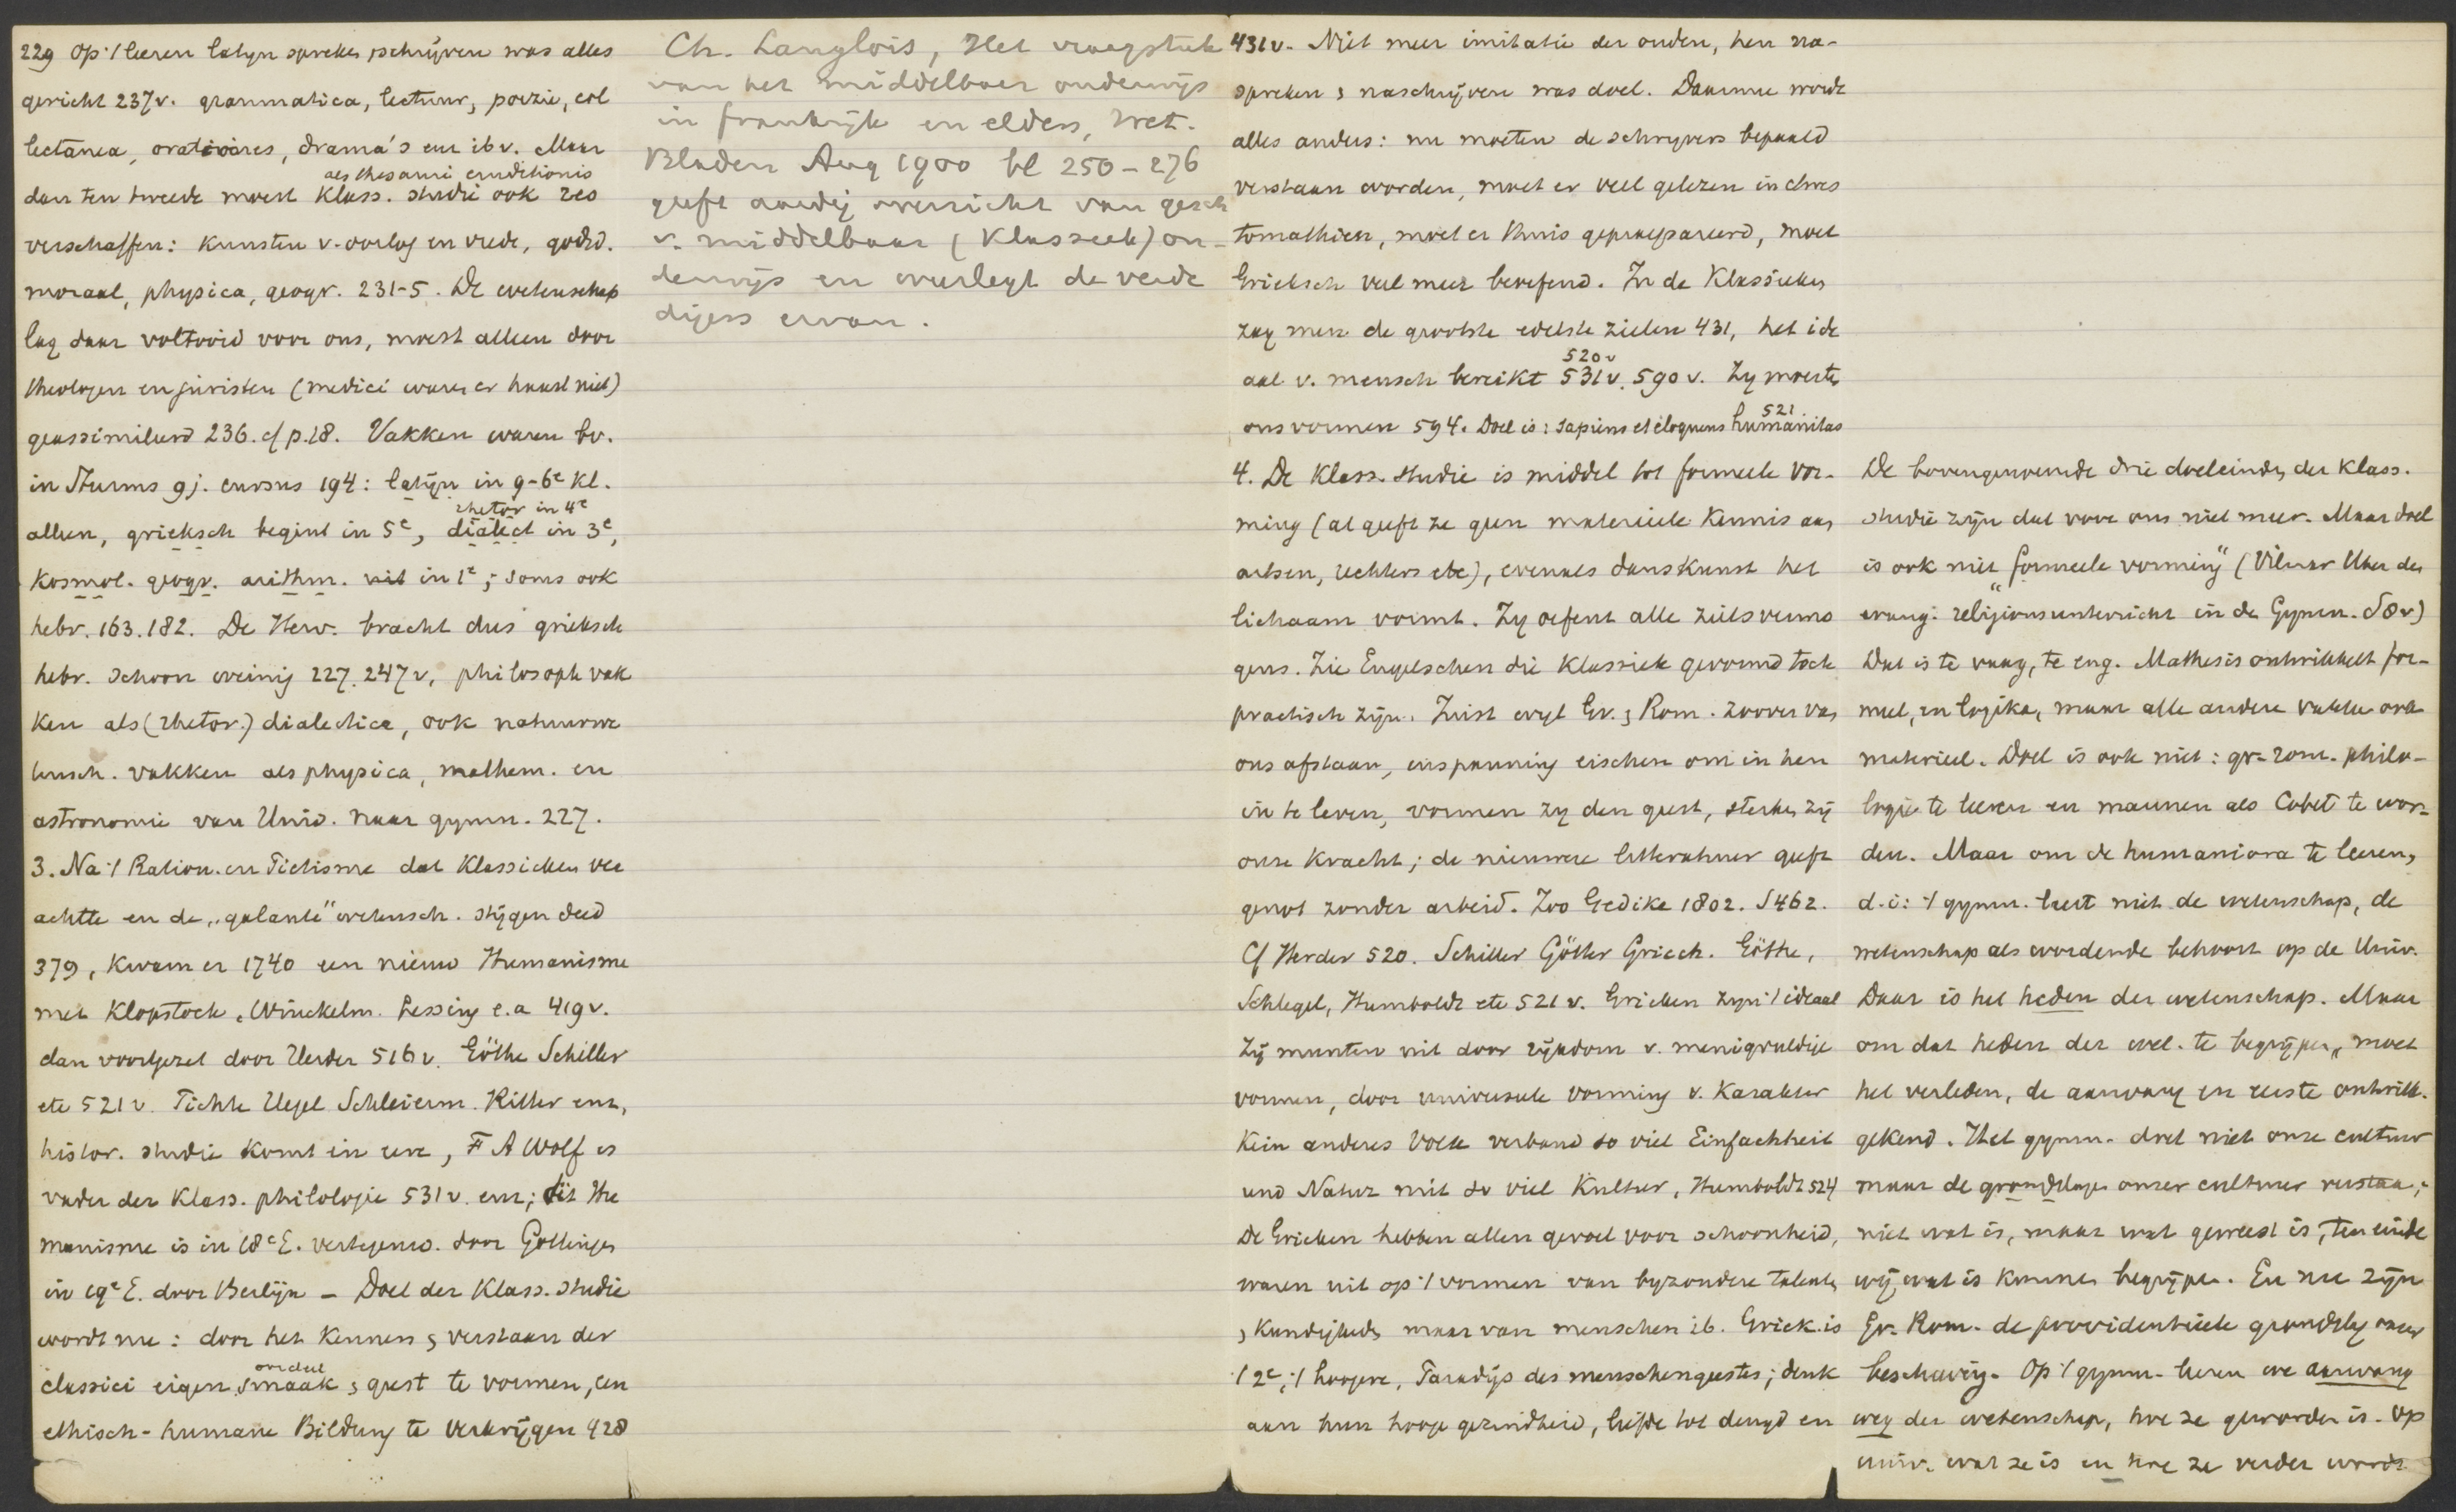 229 Op '/ leeren latijn spreken, schrijven was alles
gericht 237v. grammatica, lectuur, poezie, col
lectanea, orationes, drama's enz ib v. Maar
als thesauri eruditionis
dan ten tweede moest Klass. studie ook res
verschaffen: Kunsten v. oorlog en vrede, godsd.
moraal, physica, geogr. 231-5. De wetenschap
lag daar voltooid voor ons, moest alleen door
theologen en juristen (medici waren er haast niet)
geassimileerd 236. cf p.18. Vakken waren bv.
in Sturms 9j. cursus 194: latijn in 9-6e Kl.
rhetor in 4e
alleen, grieksch begint in 5e, dialect in 3e,
Kosmol. geogr. arithm. in 1e; soms ook
hebr. 163. 182. De Herv. bracht dus grieksch
hebr. schoon weinig 227. 247v, philosoph vak
ken als (rhetor.) dialectica, ook natuurwe
tensch. vakken als physica, mathem. en
astronomie van Univ. naar gymn. 227.
3. Na '/ Ration. en Piëtisme dat Klassieken ver
achtte en de "galante" wetensch. stijgen deed
379, Kwam er 1740 een nieuw Humanisme
met Klopstock, Winckelm. Lessing e.a 419v.
dan voortgezet door Herder 516v. Göthe Schiller
etc 521v. Fichte Hegel Schleierm. Ritter enz,
histor. studie komt in eere, F A Wolf is
vader der Klass. philologie 531v. enz; dit Hu
manisme is in 18e E. vertegenw. door Göttingen
in 19e E. door Berlijn - Doel der Klass. studie
wordt nu: door het Kennen & verstaan der
oordeel
classici eigen smaak & geest te vormen, een
ethisch-humane Bildung te verkrijgen 428
Ch. Langlois, Het vraagstuk
van het middelbaar onderwijs
in frankrijk en elders, Wet.
Bladen Aug 1900 bl 250-276
geeft aardig overzicht van gesch
v. middelbaar (Klassiek) on-
derwijs en weerlegt de verde
digers ervan.
431v. Niet meer imitatie der ouden, hen na-
spreken & naschrijven was doel. Daarmee werd
alles anders: nu moeten de schrijvers bepaald
verstaan worden, moet er veel gelezen in chres
tomathieen, moet er thuis gepraepareerd, moet
Grieksch veel meer beoefend. In de Klassieken
zag men de grootste edelste zielen 431, het ide
520v
aal v. mensch bereikt 531v. 590v. Zij moesten
521.
ons vormen 594. Doel is: sapiens et eloquens humanitas
4. De Klass. studie is middel tot formeele vor-
ming (al geeft ze geen materieele Kennis aan
artsen, rechters etc), evenals danskunst het
lichaam vormt. Zij oefent alle zielsvermo
gens. Zie Engelschen die Klassiek gevormd toch
practisch zijn. Juist wijl Gr. & Rom. zoover van
ons afstaan, inspanning eischen om in hen
in te leven, vormen zij den geest, sterken zij
onze Kracht; de nieuwere litteratuur geeft
genot zonder arbeid. Zoo Gedike 1802. S462.
Cf Herder 520. Schiller Götter Griech. Göthe,
Schlegel, Humboldt etc 521v. Grieken zijn '/ ideaal
Zij munten uit door rijkdom v. menigvuldige
vormen, door universeele vorming v. Karakter
Kein anderes Volk verband so viel Einfachheit
und Natur mit so viel Kultur, Humboldt 524
De Grieken hebben allen gevoel voor schoonheid,
waren uit op '/ vormen van byzondere talenten
& Kundigheden maar van menschen ib. Griek. is
'/ 2e, '/ hoogere, Paradijs des menschengeestes; denk
aan hun hooge gezindheid, liefde tot deugd en
De bovengenoemde drie doeleinden der Klass.
studie zijn dat voor ons niet meer. Maar doel
is ook niet "formeele vorming" (Vilmar Ueber den
evang. religionsunterricht in de Gymn. S8v)
Dat is te vaag, te eng. Mathesis ontwikkelt for-
meel, en logika, maar alle andere vakken ook
materieel. Doel is ook niet: gr-rom. philo-
logie te leeren en mannen als Cobet te wor-
den. Maar om de humaniora te leeren,
d.i: '/ gymn. leert niet de wetenschap, de
wetenschap als wordende behoort op de Univ.
Daar is het heden der wetenschap. Maar
om dat heden der wet. te begrijpen, moet
het verleden, de aanvang en eerste ontwikk.
gekend. Het gymn. doet niet onze cultuur
maar de grondslagen onzer cultuur verstaan;
niet wat is, maar wat geweest is, ten einde
wij, wat is kunnen begrijpen. En nu zijn
Gr. Rom. de providentieele grondslag onzer
beschaving. Op '/ gymn. leeren we aanvang
weg der wetenschap, hoe ze geworden is. Op
univ. wat ze is en hoe ze verder wordt